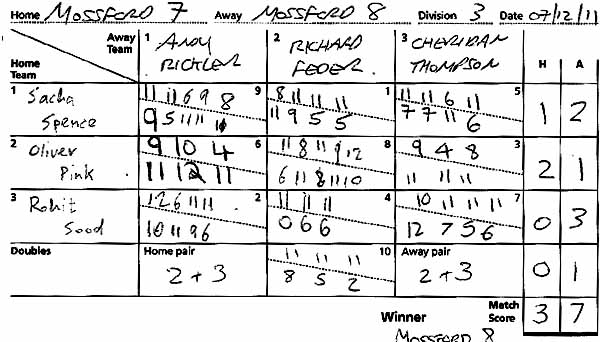 Home MOSSFORD 7 Away MOSSFORD 8 Division 3 Date 07/12/11
Away Team 1 ANDY RICKLER 2 RICHARD FEDER 3 CHERIDAN THOMPSON H A
Home Team
1 Sacha Spence 9 1 5 1 2
11 11 6 9 8 8 11 11 11 11 11 6 11
9 5 11 11 11 9 5 5 7 7 11 6
2 Oliver Pink 6 8 3 2 1
9 10 4 11 8 11 9 12 9 4 8
11 12 11 6 11 8 11 10 11 11 11
3 Rohit Sood 2 4 7 0 3
12 6 11 11 11 11 11 10 11 11 11
10 11 9 6 0 6 6 12 7 5 6
Doubles Home pair 10 Away pair 0 1
11 11 11
2+3 8 5 2 2+3
Winner Match Score 3 7
MOSSFORD 8